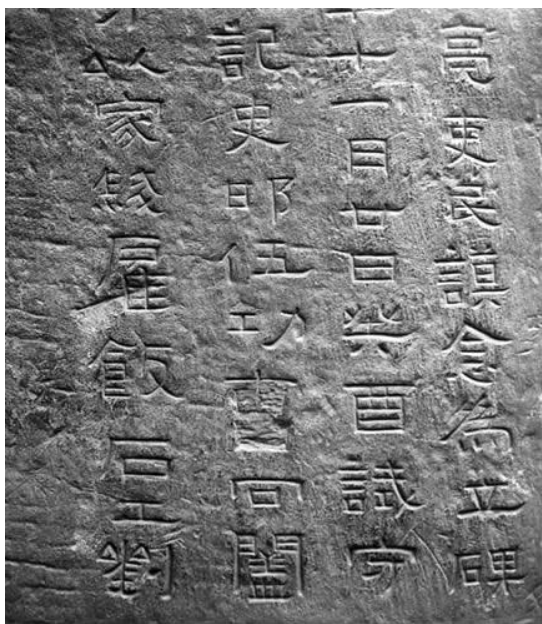 亮吏民謨念為立碑
十一月廿日癸酉試守
記史邯伍功曹向闔
以家錢雇飯石工劉